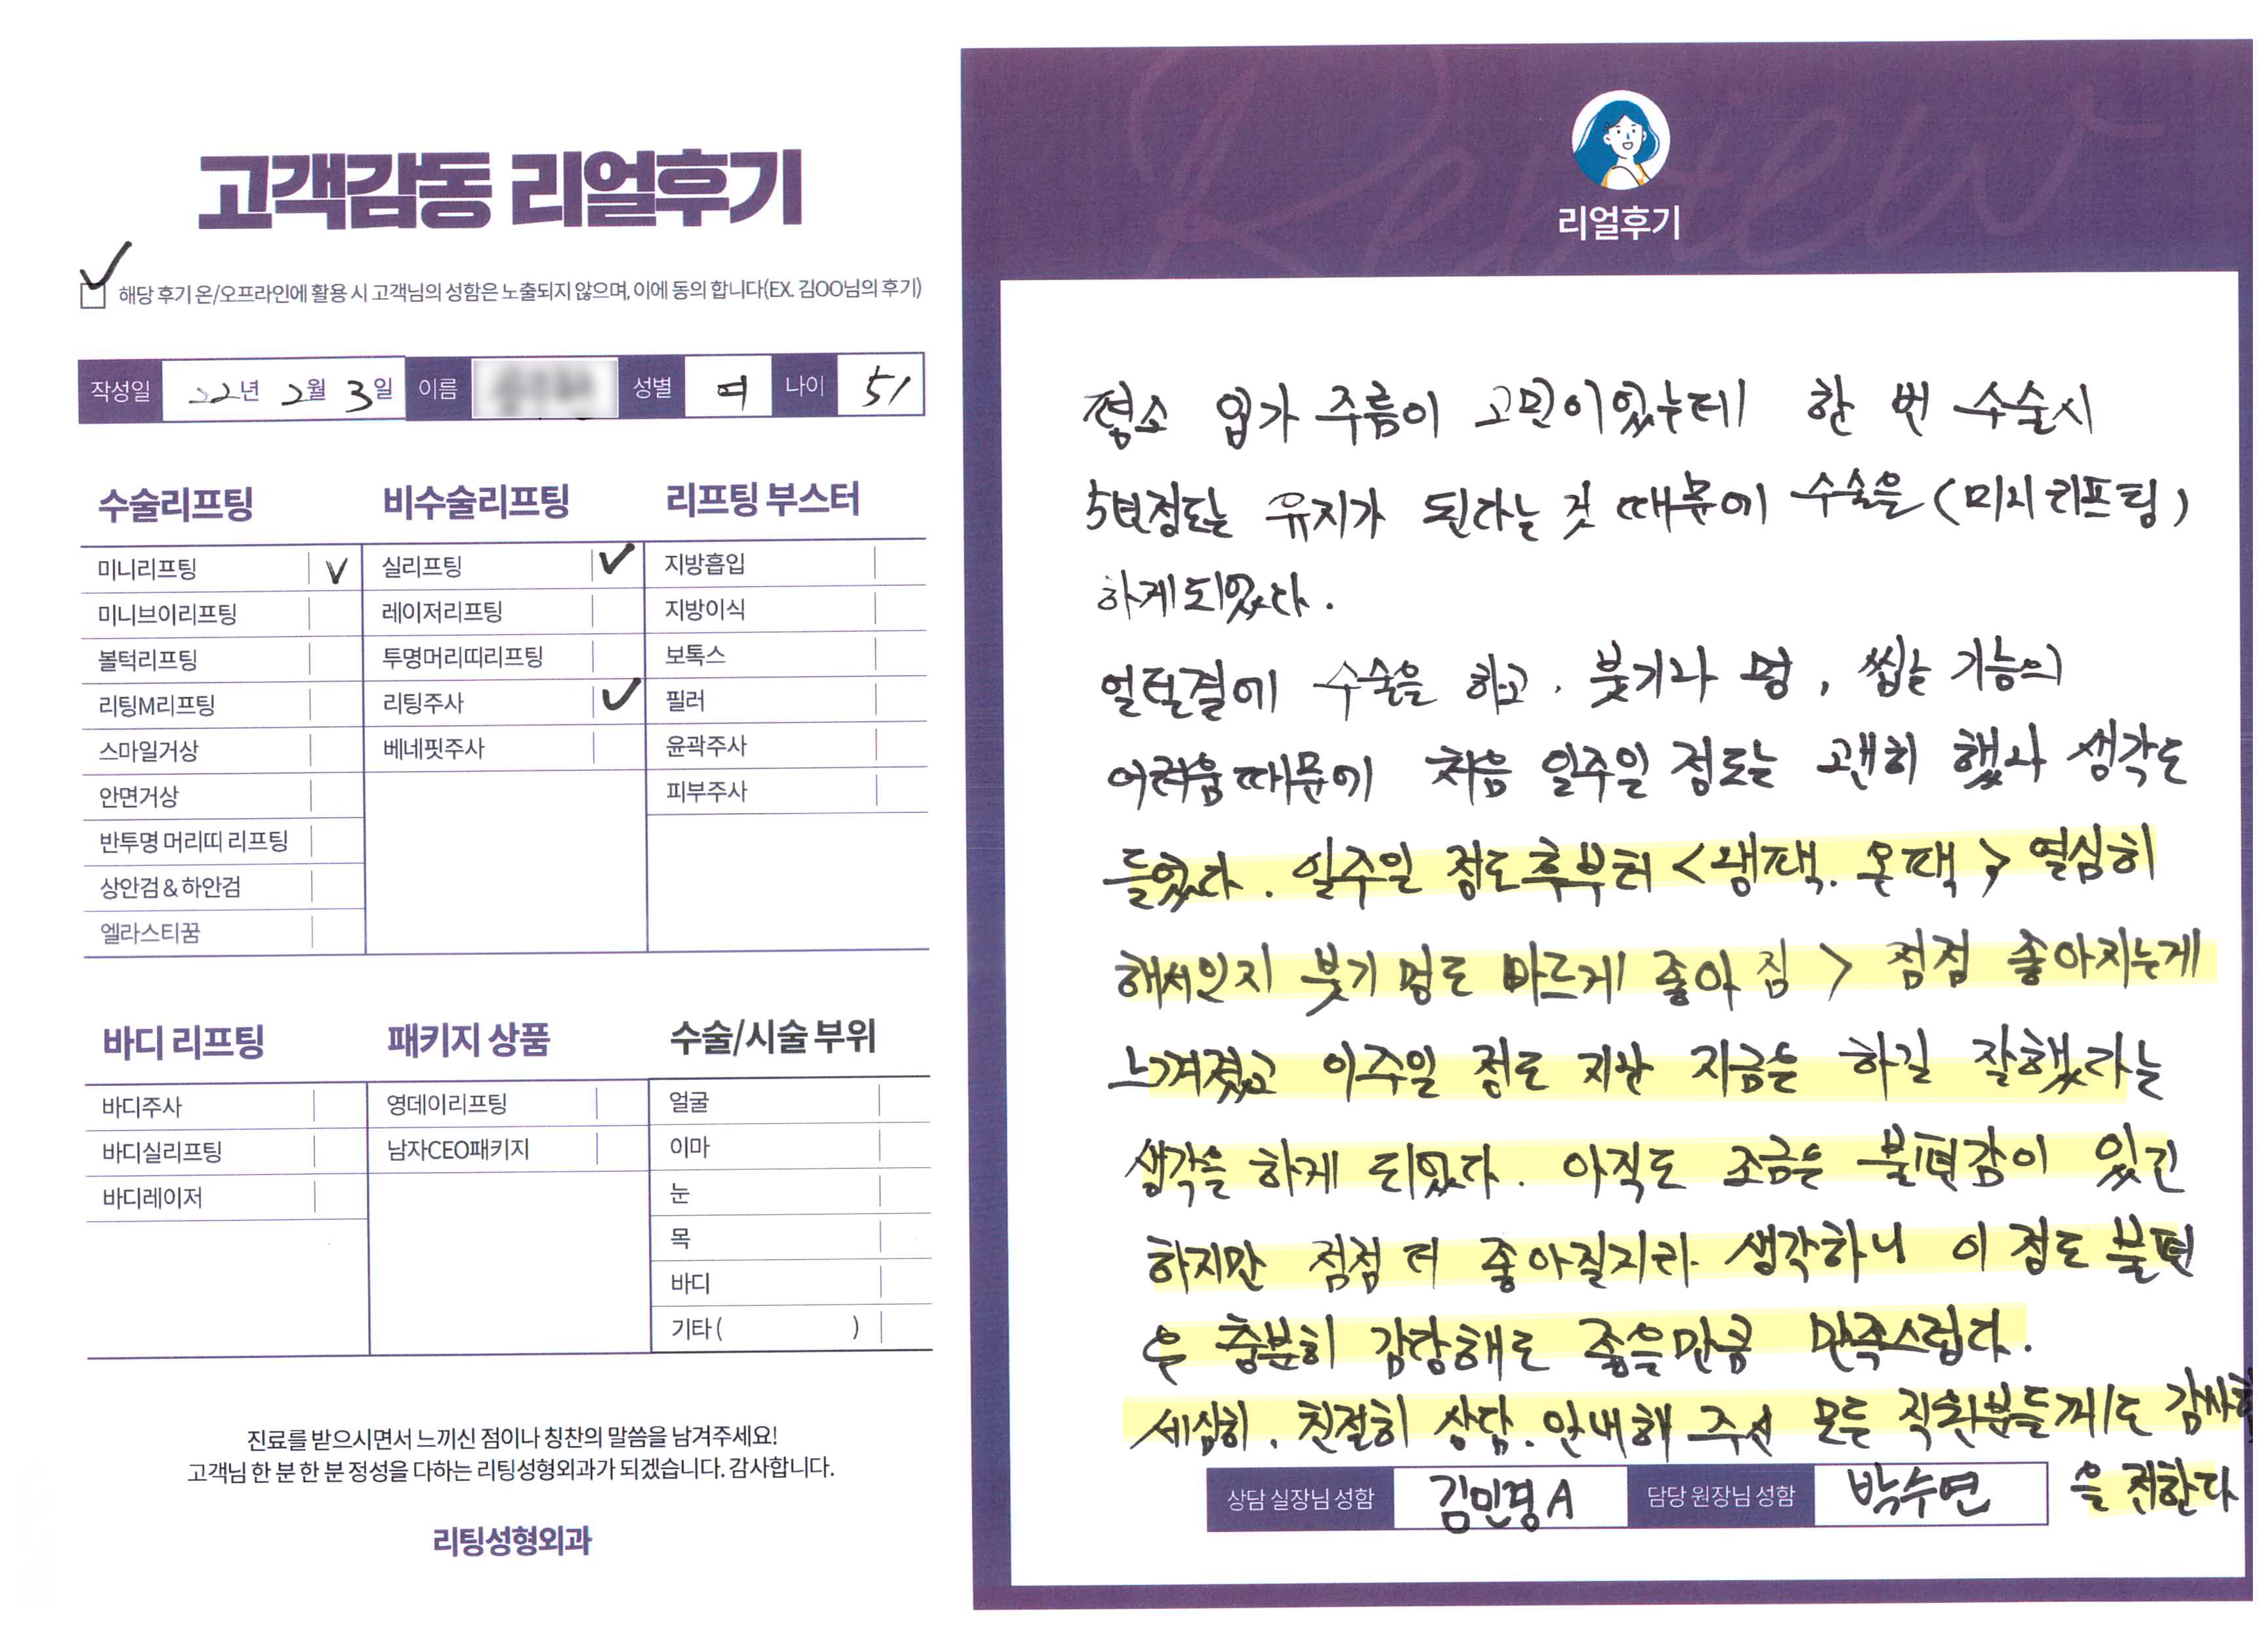 고객감동 리얼후기
해당 후기 온/오프라인에 활용 시 고객님의 성함은 노출되지 않으며, 이에 동의 합니다(EX. 김OO님의 후기)
작성일 22년 2월 3일 이름 성별 여 나이 51
수술리프팅
미니리프팅 V
미니브이리프팅
볼턱리프팅
리팅M리프팅
스마일거상
안면거상
반투명 머리띠 리프팅
상안검 & 하안검
엘라스티꿈
비수술리프팅
실리프팅 ✓
레이저리프팅
투명머리띠리프팅
리팅주사 ✓
베네핏주사
리프팅 부스터
지방흡입
지방이식
보톡스
필러
윤곽주사
피부주사
바디 리프팅
바디주사
바디실리프팅
바디레이저
패키지 상품
영데이리프팅
남자CEO패키지
수술/시술 부위
얼굴
이마
눈
목
바디
기타 ( )
진료를 받으시면서 느끼신 점이나 칭찬의 말씀을 남겨주세요!
고객님 한 분 한 분 정성을 다하는 리팅성형외과가 되겠습니다. 감사합니다.
리팅성형외과
Review
리얼후기
평소 입가 주름이 고민이었는데 한 번 수술시
5년정도는 유지가 된다는 것 때문에 수술을 (미니리프팅)
하게되었다.
얼떨결에 수술을 하고, 붓기와 멍, 씹는 기능의
어려움때문에 처음 일주일 정도는 괜히 했나 생각도
들었다. 일주일 정도후부터 <냉팩. 온팩> 열심히
해서인지 붓기 멍도 빠르게 좋아 짐 > 점점 좋아지는게
느껴졌고 이주일 정도 지난 지금은 하길 잘했다는
생각을 하게 되었다. 아직도 조금은 불편감이 있긴
하지만 점점 더 좋아질지라 생각하니 이 정도 불편
은 충분히 감당해도 좋을만큼 만족스럽다.
세심히, 친절히 상담. 안내해 주신 모든 직원분들께도 감사함
을 전한다
상담 실장님 성함 김민경A 담당 원장님 성함 박수연